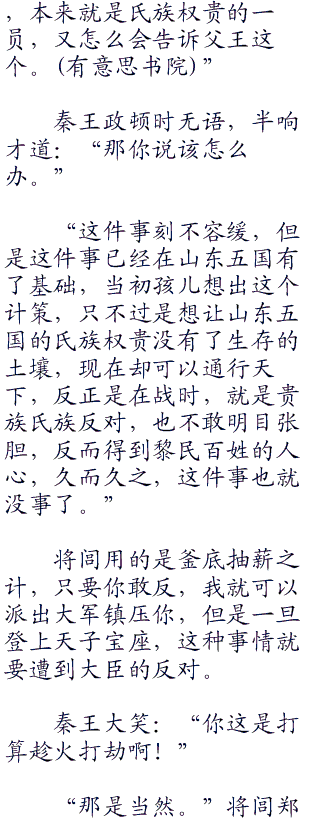 ，本来就是氏族权贵的一
员，又怎么会告诉父王这
个。(有意思书院)”
秦王政顿时无语，半响
才道：“那你说该怎么
办。”
“这件事刻不容缓，但
是这件事已经在山东五国有
了基础，当初孩儿想出这个
计策，只不过是想让山东五
国的氏族权贵没有了生存的
土壤，现在却可以通行天
下，反正是在战时，就是贵
族氏族反对，也不敢明目张
胆，反而得到黎民百姓的人
心，久而久之，这件事也就
没事了。”
将闾用的是釜底抽薪之
计，只要你敢反，我就可以
派出大军镇压你，但是一旦
登上天子宝座，这种事情就
要遭到大臣的反对。
秦王大笑：“你这是打
算趁火打劫啊！”
“那是当然。”将闾郑